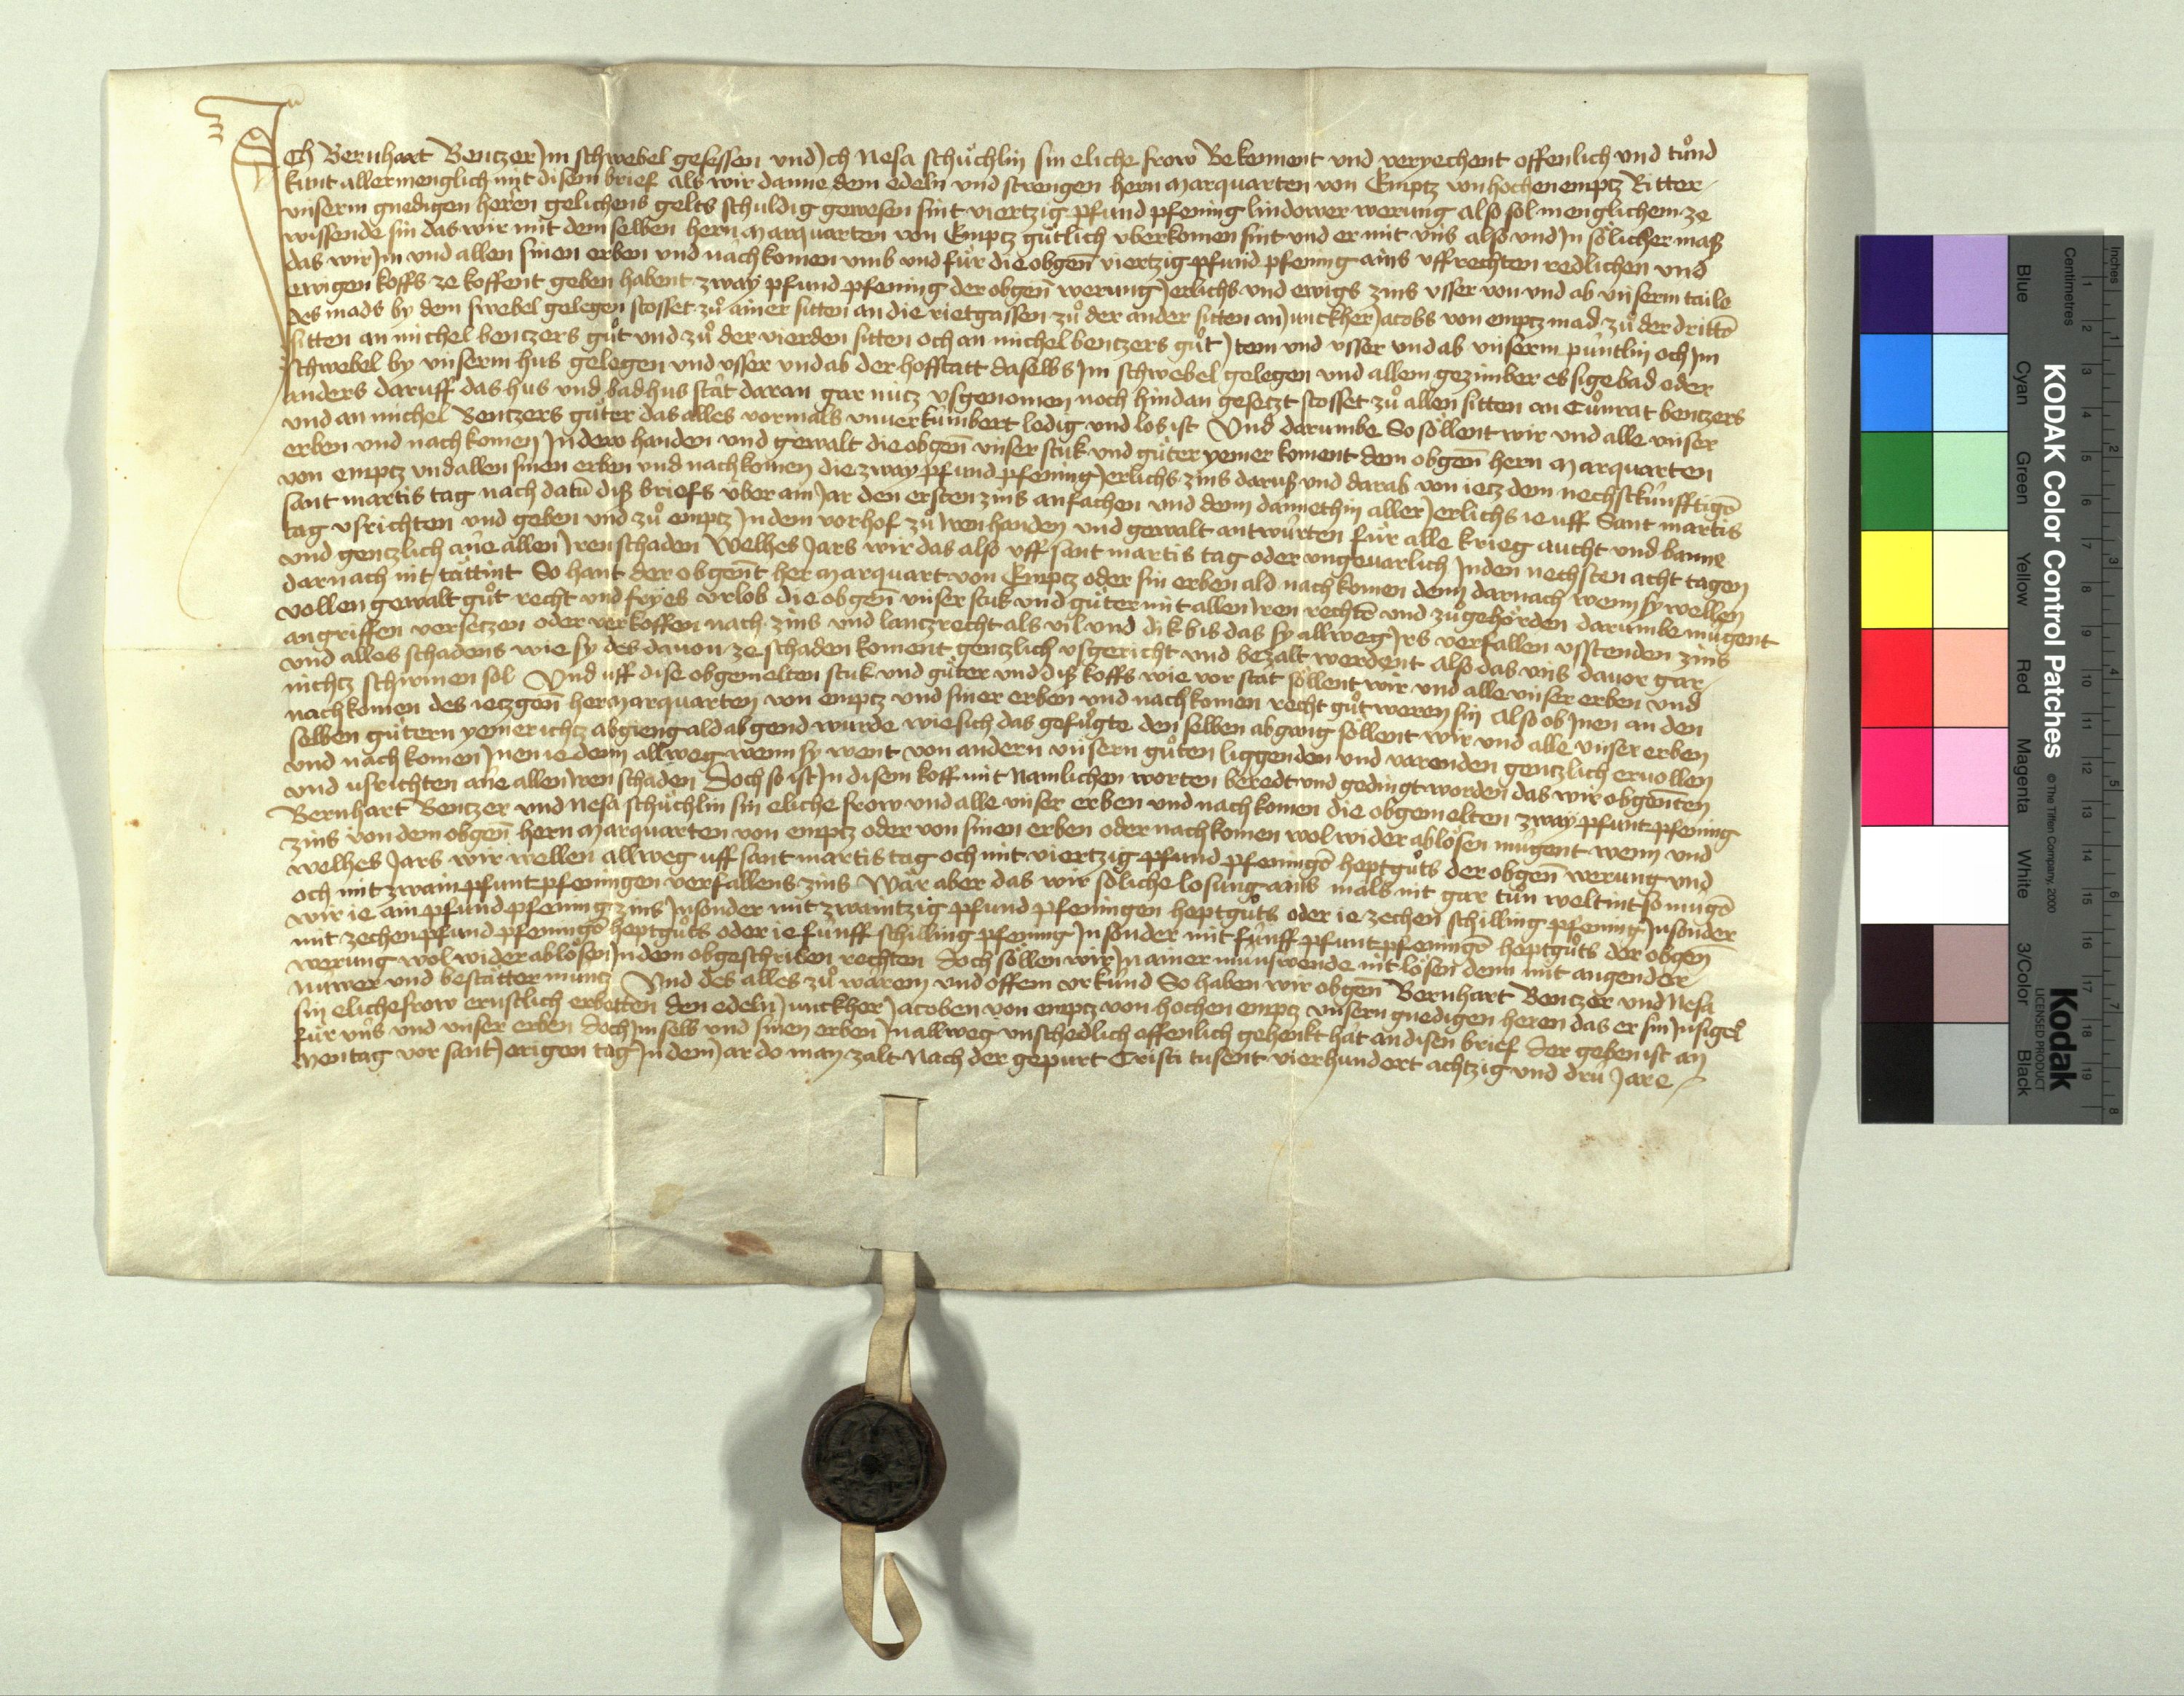 Ich Bernhart Bentzer Im schwebel gesessen und Ich Nesa schůchlin sin eliche frow Bekennent und veryechent offenlich und tůnd
kunt allermenglich mit disem brief als wir danne dem edeln und strengen hern Marquarten von Emptz von hochenemptz Ritter
unserm gnedigen heren gelichens gelts schuldig gewesen sint viertzig pfund pfening lindower werung also sol menglichem ze
wissende sin das wir mit dem selben hern Marquarten von Emptz gůtlich uberkomen sint und er mit uns also und In sőlicher maß
das wir Im und allen sinen erben und nachkomen umb und fůr die obgen̄ viertzig pfund pfening ains uffrechten redlichen und
ewigen koffs ze koffent geben habent zway pfund pfening der obgen̄ werung Jerlichs und ewigs zins usser von und ab unserm taile
des mads by dem swebel gelegen stosset zů ainer sitten an die rietgassen zů der ander sitten an Junckher Jacobs von emptz mad zů der dritte̅
sitten an michel bentzers gůt und zů der vierden sitten och an michel bentzers gůt Item und usser und ab unserm pu̇ntlin och Im
schwebel by unserm hus gelegen und usser und ab der hofstatt daselbs Im schwebel gelegen und allem gezimber es sige bad oder
anders daruff das hus und badhus stat daran gar nutz usgenomen noch hindan gesetzt stosset zů allen sitten an Cůnrat bentzers
und an michel Bentzers gůter das alles vormals unverkumbert ledig und los ist Und darumbe So söllent wir und alle unser
erben und nachkomen In dero handen und gewalt die obgen̄ unser stuk und gůter yemer koment dem obgen̄ hern Marquarten
von emptz und allen sinen erben und nachkomen die zway pfund pfening Jerlichs zins daruß und darab von ietz dem nechstkunfftige̅
sant martis tag nach datu̅ diß briefs uber ain Jar den ersten zins anfachen und denn dannethin aller Jerlichs ie uff Sant martis
tag usrichten und geben und zů emptz In dem vorhof zů Iren handen und gewalt antwurten fůr alle krieg aucht und banne
und gentzlich ane allen Iren schaden Welhes Jars wir das also uff sant martis tag oder ungevarlich In den nechsten acht tagen
darnach nit tättint So hant der obgen̄t her Marquart von Emptz oder sin erben ald nachkomen denn darnach wenn sy wellen
vollen gewalt gůt recht und fryes urlob die obgen̄ unser stuk und gůter mit allen Iren rechte̅ und zůgehörden darumbe mugent
angriffen versetzen oder verkoffen nach zins und lantzrecht als vil und dik bis das sy allweg Irs verfallen usstenden zins
und alles schadens wie sy des davon ze schaden koment gentzlich usgericht und bezalt werdent also das uns davor gar
nichtz schirmen sol Und uff dise obgemelten stuk und gůter und diß koffs wie vor stat söllent wir und alle unser erben und
nachkomen des ietzgen̄ her Marquarten von emptz und siner erben und nachkomen recht gůt weren sin Also ob Inen an den
selben gůtern yemer ichtz abgieng ald abgend wurde wie sich das gefůgte den selben abgang söllent wir und alle unser erben
und nachkomen Inen ie denn allweg wenn sy went von andern unsern gůten liggenden und varenden gentzlich ervollen
und usrichten ane allen Iren schaden Doch so ist In disem koff mit Namlichen worten beredt und gedingt worden das wir obgen̄ten
Bernhart Bentzer und Nesa schůchlin sin eliche frow und alle unser erben und nachkomen die obgemelten zway pfunt pfening
zins von dem obgen̄ hern Marquarten von emptz oder von sinen erben oder nachkomen wol wider ablösen mugent wenn und
welhes Jars wir wellen allweg uff sant martis tag och mit viertzig pfund pfeninge̅ hoptgůts der obgen̄ werung und
och mit zwain pfunt pfeningen verfallens zins Wär aber das wir söliche losung ains mals nit gar tůn weltint so muge̅
wir ie ain pfund pfening zins Insonder mit zwaintzig pfund pfeningen hoptgůts oder ie zechen schilling pfening Insonder
mit zechen pfund pfeninge̅ hoptgůts oder ie funff schilling pfening Insonder mit funff pfunt pfeninge̅ hoptgůts der obgen̄
werung wol wider ablösen In dem obgeschriben rechten Doch söllen wir In ainer munswende nit lösen denn mit angender
nuwer und bestätter muntz Und des alles zů warem und offem urkund So haben wir obgen̄ Bernhart Bentzer und Nesa
sin eliche frow ernstlich erbetten den edeln Junckher Jacoben von emptz von hochen emptz unsern gnedigen heren das er sin Insigel
fůr uns und unser erben doch Im selb und sinen erben In allweg unschedlich offenlich gehenkt hat an disen brief Der geben ist an
Mentag vor sant Jerigen tag In dem Jar do man zalt Nach der gepurt Cristi tusent vierhundert achtzig und dru Jare
Inches
Centimetres
KODAK Color Control Patches
© The Tiffen Company, 2000
Blue
Cyan
Green
Yellow
Red
Magenta
White
3/Color
Black
Kodak
LICENSED PRODUCT
1 2 3 4 5 6 7 8 9 10 11 12 13 14 15 16 17 18 19
1 2 3 4 5 6 7 8